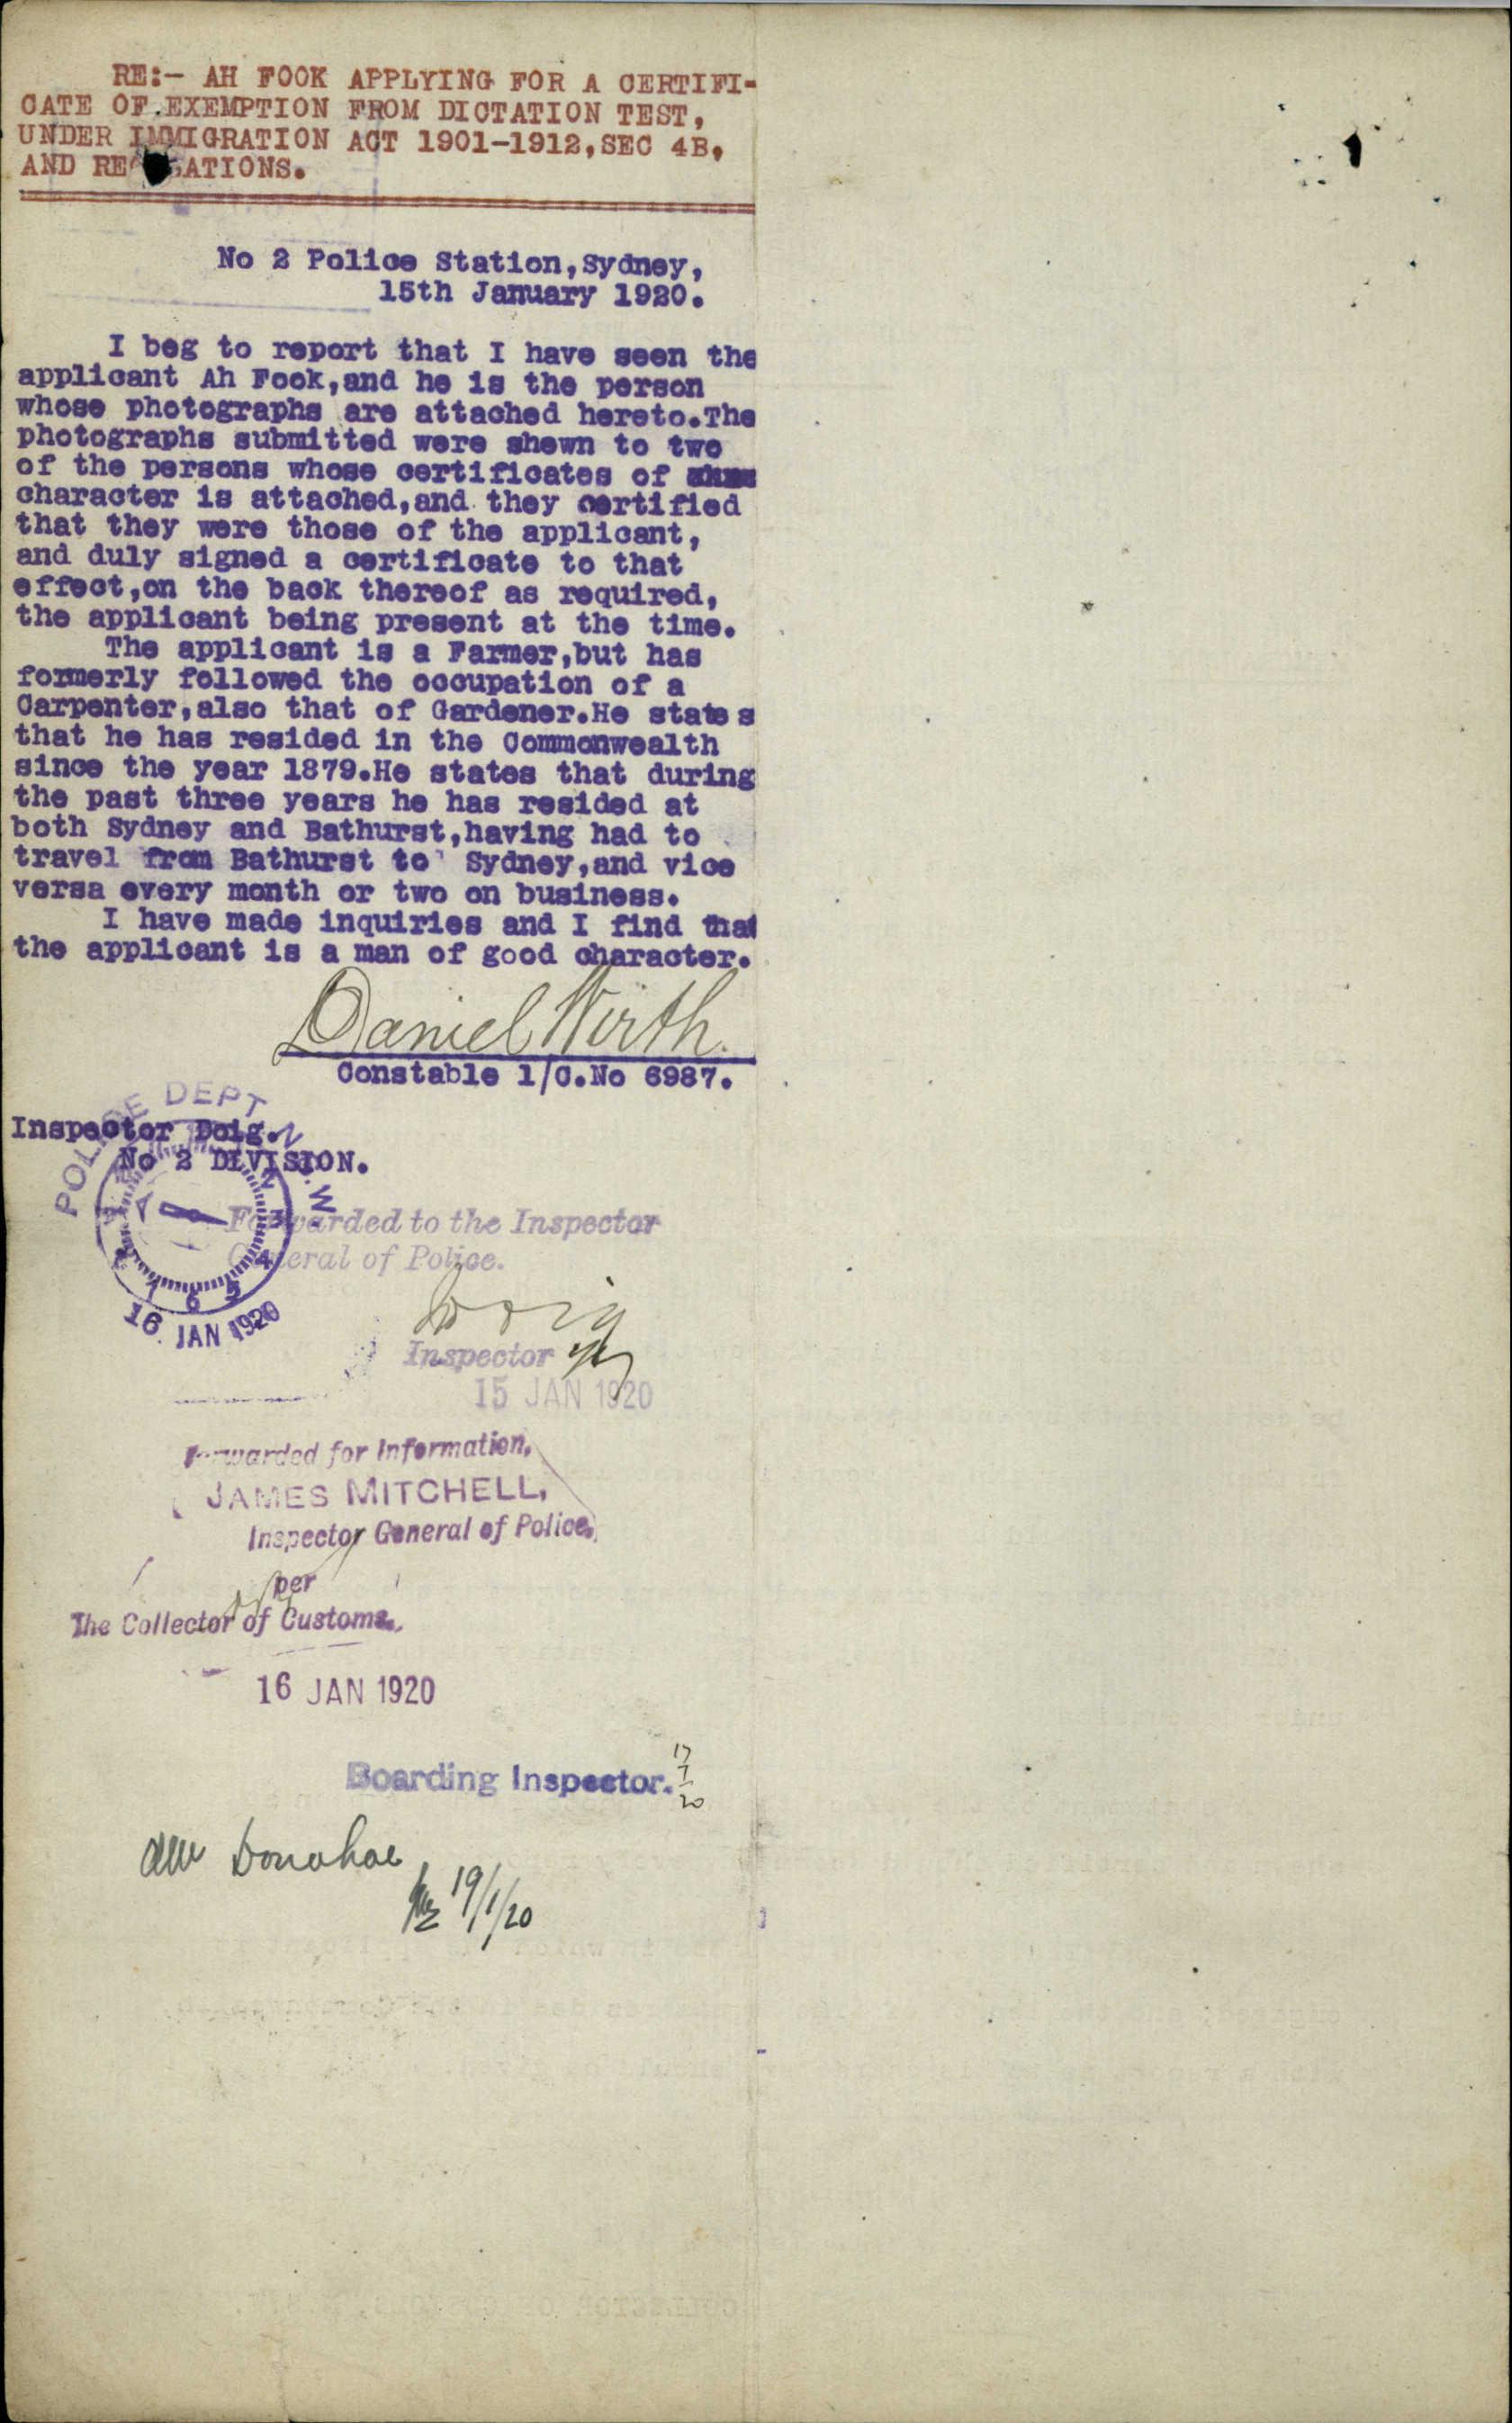 RE:- AH FOOK APPLYING FOR A CERTIFI-
CATE OF EXEMPTION FROM DICTATION TEST,
UNDER IMMIGRATION ACT 1901-1912,SEC 4B,
AND RE ATIONS.
No 2 Police Station,Sydney,
15th January 1920.
I beg to report that I have seen the
applicant Ah Fook,and he is the person
whose photographs are attached hereto.The
photographs submitted were shewn to two
of the persons whose certificates of
character is attached,and they certified
that they were those of the applicant,
and duly signed a certificate to that
effect,on the back thereof as required,
the applicant being present at the time.
The applicant is a Farmer,but has
formerly followed the occupation of a
Carpenter,also that of Gardener.He states
that he has resided in the Commonwealth
since the year 1879.He states that during
the past three years he has resided at
both Sydney and Bathurst,having had to
travel from Bathurst to Sydney,and vice
versa every month or two on business.
I have made inquiries and I find that
the applicant is a man of good character.
Daniel Wirth.
Constable 1/C.No 6987.
POLICE DEPT N.S.W
Inspector Doig.
No 2 DIVISION.
Forwarded to the Inspector
General of Police.
16 JAN 1920
Doig
Inspector
15 JAN 1920
Forwarded for Information,
JAMES MITCHELL,
Inspector General of Police,
per
The Collector of Customs.
16 JAN 1920
Boarding Inspector. 17/1/20
Donohoe
19/1/20